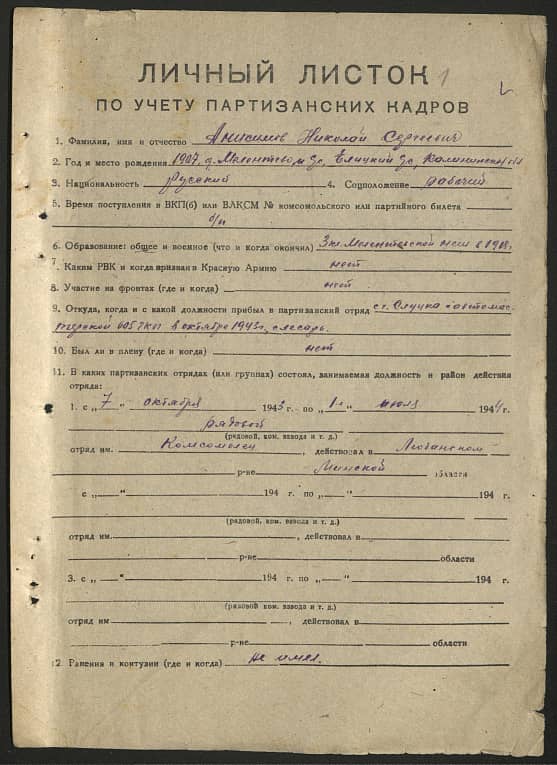 ЛИЧНЫЙ ЛИСТОК 1
ПО УЧЕТУ ПАРТИЗАНСКИХ КАДРОВ
1. Фамилия, имя и отчество Анисимов Николай Сергеевич
2. Год и место рождения 1907, д. Елицкий Калининской обл
3. Национальность Русский 4. Соцположение рабочий
5. Время поступления в ВКП(б) или ВЛКСМ № комсомольского или партийного билета
б/п
6. Образование: общее и военное (что и когда окончил) 3 кл. в 1918г.
7. Каким РВК и когда призван в Красную Армию нет
8. Участие на фронтах (где и когда) нет
9. Откуда, когда и с какой должности прибыл в партизанский отряд с г. Слуцка автомас-
терской в октябре 1943г, слесарь.
10. Был ли в плену (где и когда) нет
11. В каких партизанских отрядах (или группах) состоял, занимаемая должность и район действия
отряда:
1. с „7" октября 1943 г. по „1" июля 1944 г.
рядовой
(рядовой, ком. взвода и т. д.)
отряд им. Комсомолец, действовал в Любанском
р-не Минской области
с „ — " 194 г. по „ — " 194 г.
(рядовой, ком. взвода и т. д.)
отряд им. , действовал в
р-не области
3. с „ — " 194 г. по „ — " 194 г.
(рядовой ком. взвода и т. д.)
отряд им , действовал в
р-не области
12 Ранения и контузии (где и когда) не имел.